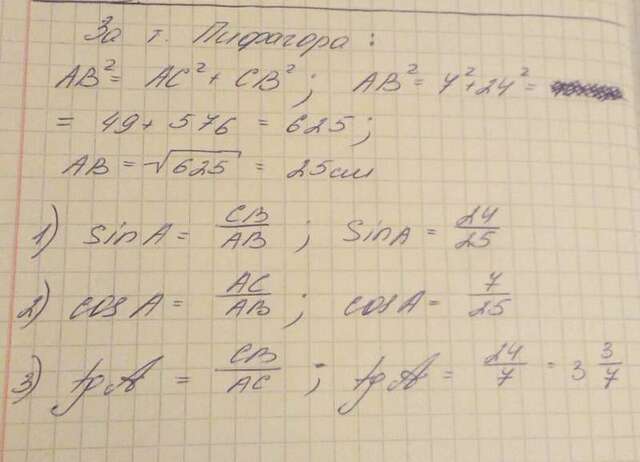 За т. Пифагора:
AB² = AC² + CB²; AB² = 7² + 24² =
= 49 + 576 = 625;
AB = √625 = 25см
1) sin A = CB/AB; sin A = 24/25
2) cos A = AC/AB; cos A = 7/25
3) tg A = CB/AC; tg A = 24/7 = 3 3/7